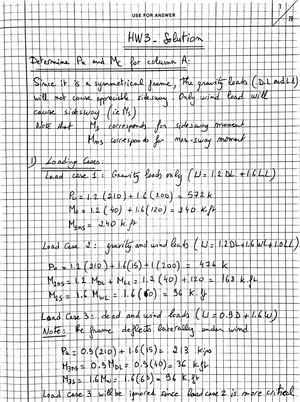 USE FOR ANSWER
1
20
HW3 - Solution
Determine Pu and Mc for column A:
Since it is a symmetrical frame, the gravity loads (D.L and L.L)
will not cause appreciable sidesway. Only wind load will
cause sidesway (i.e Ms)
Note that Ms corresponds for sidesway moment
Mns corresponds for non-sway moment
1) Loading Cases:
Load case 1: Gravity loads only (U = 1.2 DL + 1.6 LL)
Pu = 1.2 (210) + 1.6 (200) = 572 k
Mu = 1.2 (40) + 1.6 (120) = 240 k.ft
M2ns = 240 k.ft
Load Case 2: gravity and wind loads (U = 1.2DL + 1.6WL + 1.0LL)
Pu = 1.2(210) + 1.6(15) + 1(200) = 476 k
M2ns = 1.2 MDL + MLL = 1.2 (40) + 120 = 168 k.ft
M2s = 1.6 MWL = 1.6 (60) = 96 k.ft
Load Case 3: dead and wind loads (U = 0.9D + 1.6W)
Note: the frame deflects laterally under wind
Pu = 0.9(210) + 1.6(15) = 213 kips
M2ns = 0.9 MDL = 0.9(40) = 36 k.ft
M2s = 1.6 MW = 1.6(60) = 96 k.ft
Load case 3 will be ignored since load case 2 is more critical